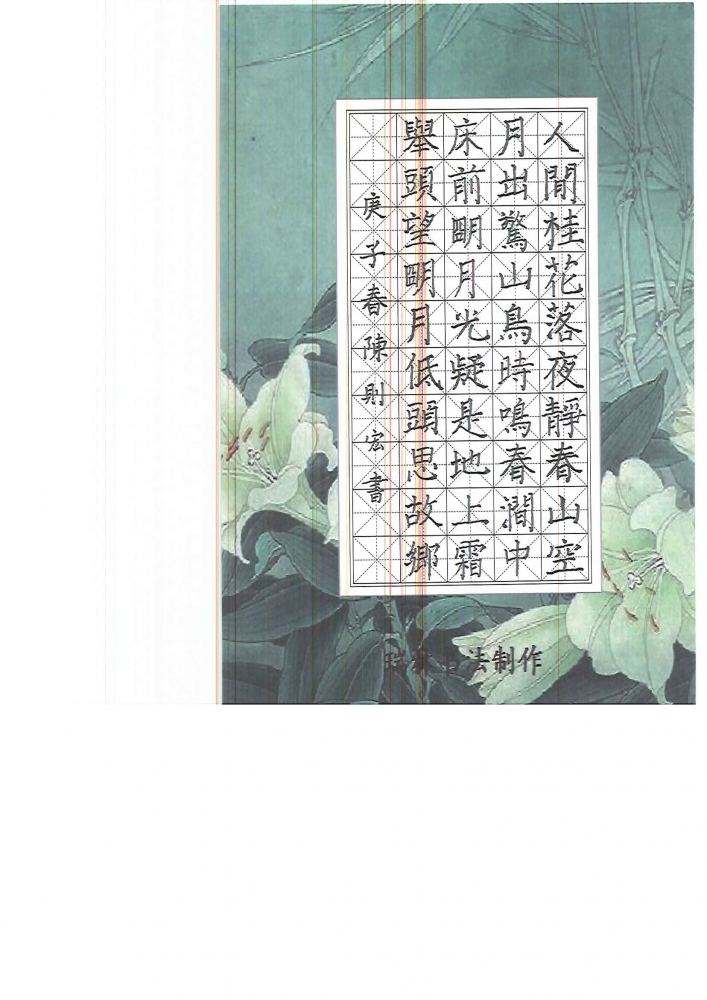 人閒桂花落夜靜春山空
月出驚山鳥時鳴春澗中
床前朙月光疑是地上霜
舉頭望朙月低頭思故鄉
庚子春陳則宏書
法制作